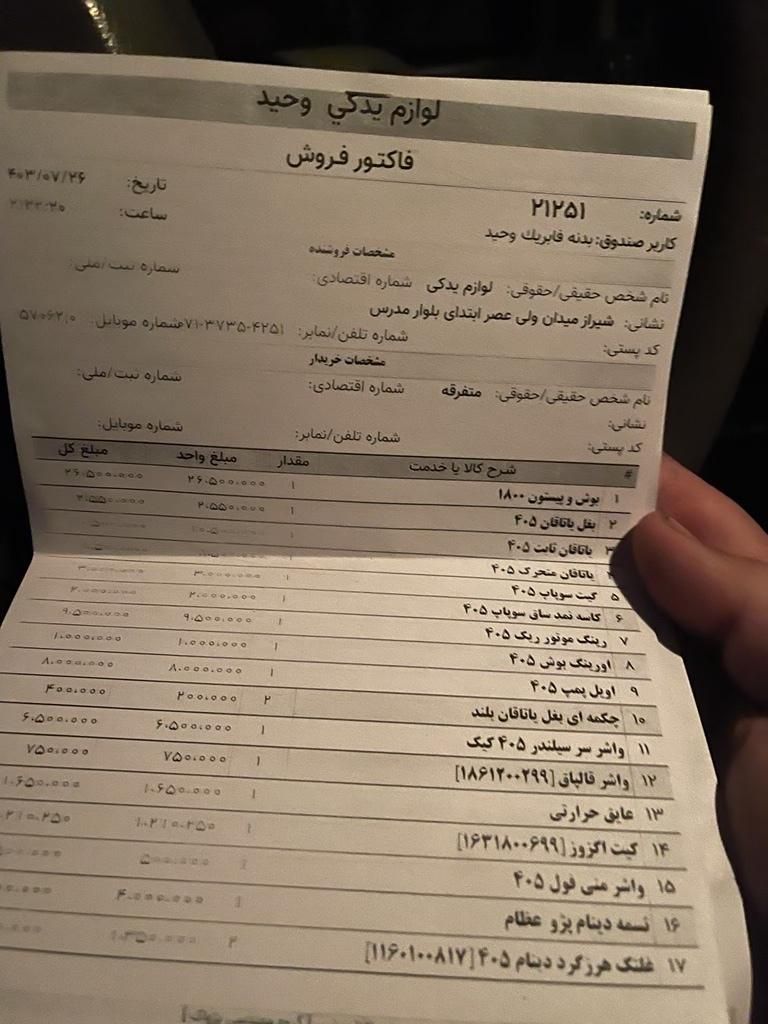 لوازم يدكي وحيد
فاکتور فروش
شماره: ۲۱۲۵۱ تاریخ: ۴۰۳/۰۷/۲۶
کاربر صندوق: بدنه فابريك وحيد ساعت:
مشخصات فروشنده
نام شخص حقیقی/حقوقی: لوازم یدکی شماره اقتصادی: شماره ثبت/ملی:
نشانی: شیراز میدان ولی عصر ابتدای بلوار مدرس
کد پستی: شماره تلفن/نمابر: ۰۷۱-۳۷۳۵-۴۲۵۱ شماره موبایل:
مشخصات خریدار
نام شخص حقیقی/حقوقی: متفرقه شماره اقتصادی: شماره ثبت/ملی:
نشانی:
کد پستی: شماره تلفن/نمابر: شماره موبایل:
# شرح کالا یا خدمت مقدار مبلغ واحد مبلغ کل
۱ بوش و پیستون ۱۸۰۰ ۱ ۲۶،۵۰۰،۰۰۰ ۲۶،۵۰۰،۰۰۰
۲ بغل یاتاقان ۴۰۵ ۱ ۲،۵۵۰،۰۰۰ ۲،۵۵۰،۰۰۰
۳ یاتاقان ثابت ۴۰۵ ۱
یاتاقان متحرک ۴۰۵ ۱
۵ کیت سوپاپ ۴۰۵ ۱ ۳،۰۰۰،۰۰۰ ۳،۰۰۰،۰۰۰
۶ کاسه نمد ساق سوپاپ ۴۰۵ ۱ ۲،۰۰۰،۰۰۰ ۲،۰۰۰،۰۰۰
۷ رینگ موتور ریک ۴۰۵ ۱ ۹،۵۰۰،۰۰۰ ۹،۵۰۰،۰۰۰
۸ اورینگ بوش ۴۰۵ ۱ ۱،۰۰۰،۰۰۰ ۱،۰۰۰،۰۰۰
۹ اویل پمپ ۴۰۵ ۱ ۸،۰۰۰،۰۰۰ ۸،۰۰۰،۰۰۰
۱۰ چکمه ای بغل یاتاقان بلند ۲ ۲۰۰،۰۰۰ ۴۰۰،۰۰۰
۱۱ واشر سر سیلندر ۴۰۵ کیک ۱ ۶،۵۰۰،۰۰۰ ۶،۵۰۰،۰۰۰
۱۲ واشر قالپاق [۱۸۶۱۲۰۰۲۹۹] ۱ ۷۵۰،۰۰۰ ۷۵۰،۰۰۰
۱۳ عایق حرارتی ۱ ۱،۶۵۰،۰۰۰ ۱،۶۵۰،۰۰۰
۱۴ کیت اگزوز [۱۶۳۱۸۰۰۶۹۹] ۱ ۱،۲۱۰،۲۵۰
۱۵ واشر منی فول ۴۰۵ ۱
۱۶ تسمه دینام پژو عظام ۱ ۴،۰۰۰،۰۰۰
۱۷ غلتک هرزگرد دینام ۴۰۵ [۱۱۶۰۱۰۰۸۱۷] ۲ ۱،۳۵۰،۰۰۰